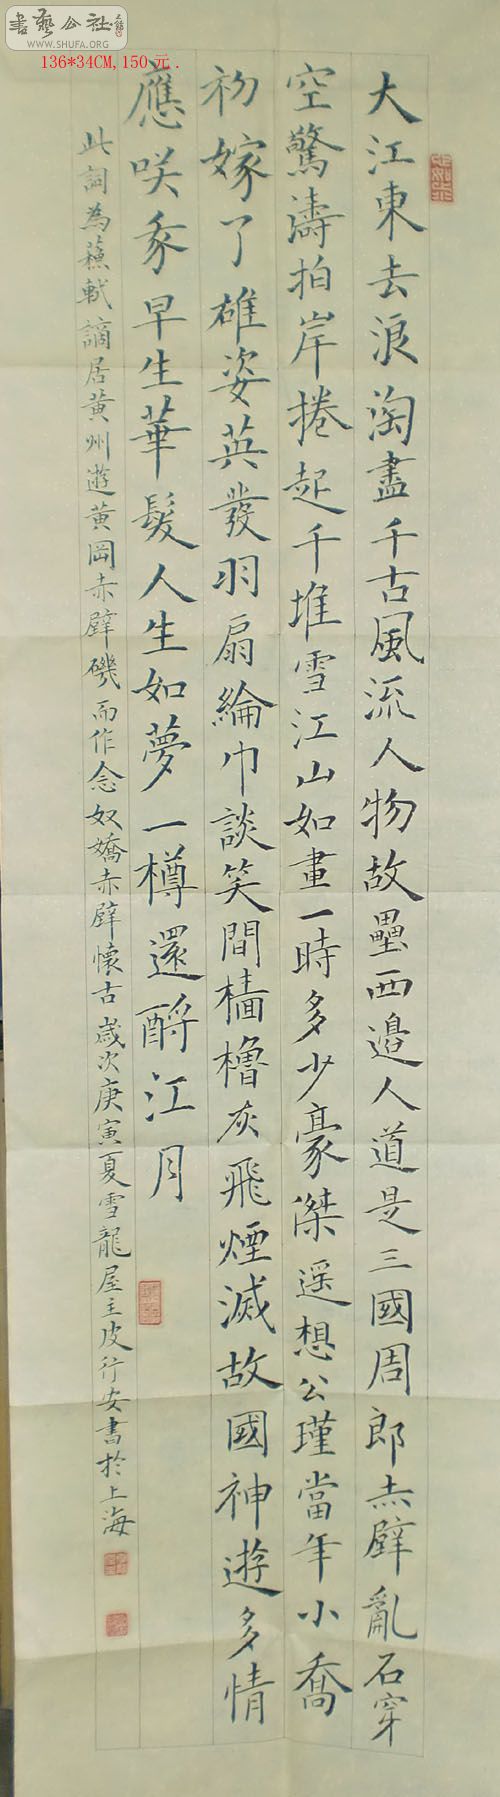 書藝公社
WWW.SHUFA.ORG
136*34CM,150元.
大江東去浪淘盡千古風流人物故壘西邊人道是三國周郎赤壁亂石穿
空驚濤拍岸捲起千堆雪江山如畫一時多少豪傑遥想公瑾當年小喬
初嫁了雄姿英發羽扇綸巾談笑間檣櫓灰飛煙滅故國神遊多情
應咲我早生華髮人生如夢一樽還酹江月
此詞為蘇軾謫居黃州遊黃岡赤壁磯而作念奴嬌赤壁懷古歲次庚寅夏雪龍屋主皮行安書於上海